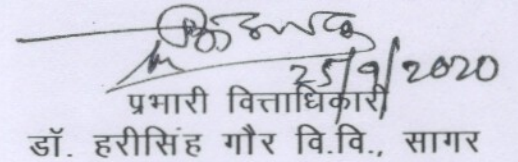 25/9/2020
प्रभारी वित्ताधिकारी
डॉ. हरीसिंह गौर वि.वि., सागर